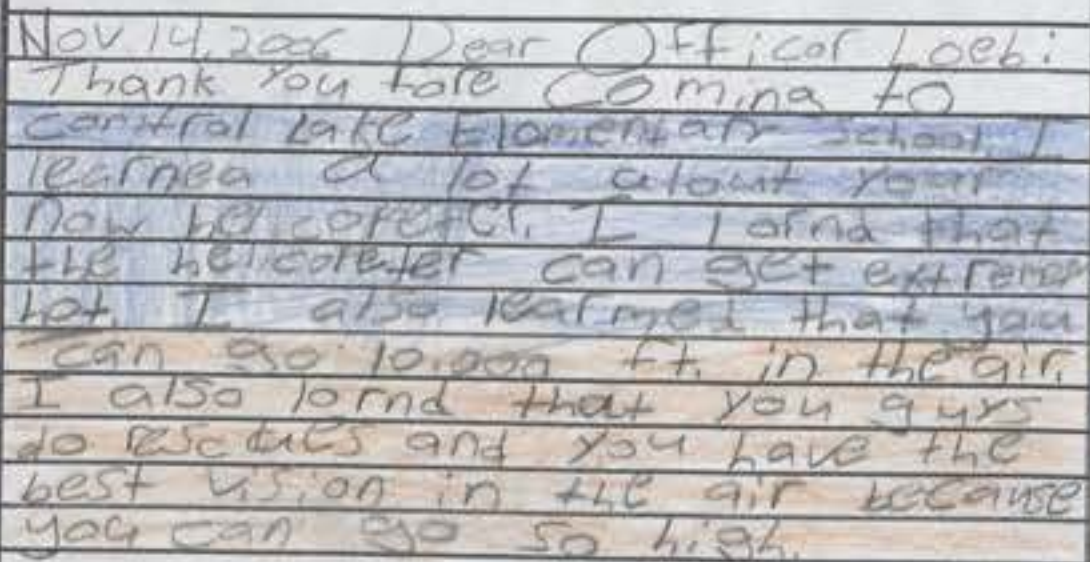 Nov. 14, 2006 Dear Officor Loeb:
Thank you fore Coming to
central Lake Elomentary school. I
learned a lot about your
now helicopeter. I lornd that
the helicoreter can get extremer
hot. I also learned that you
can go 10,000 ft. in the air.
I also lornd that you guys
do rescues and you have the
best vision in the air because
you can go so high.